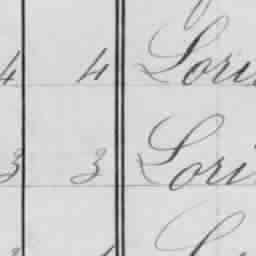 4 4 Lori
3 3 Lori